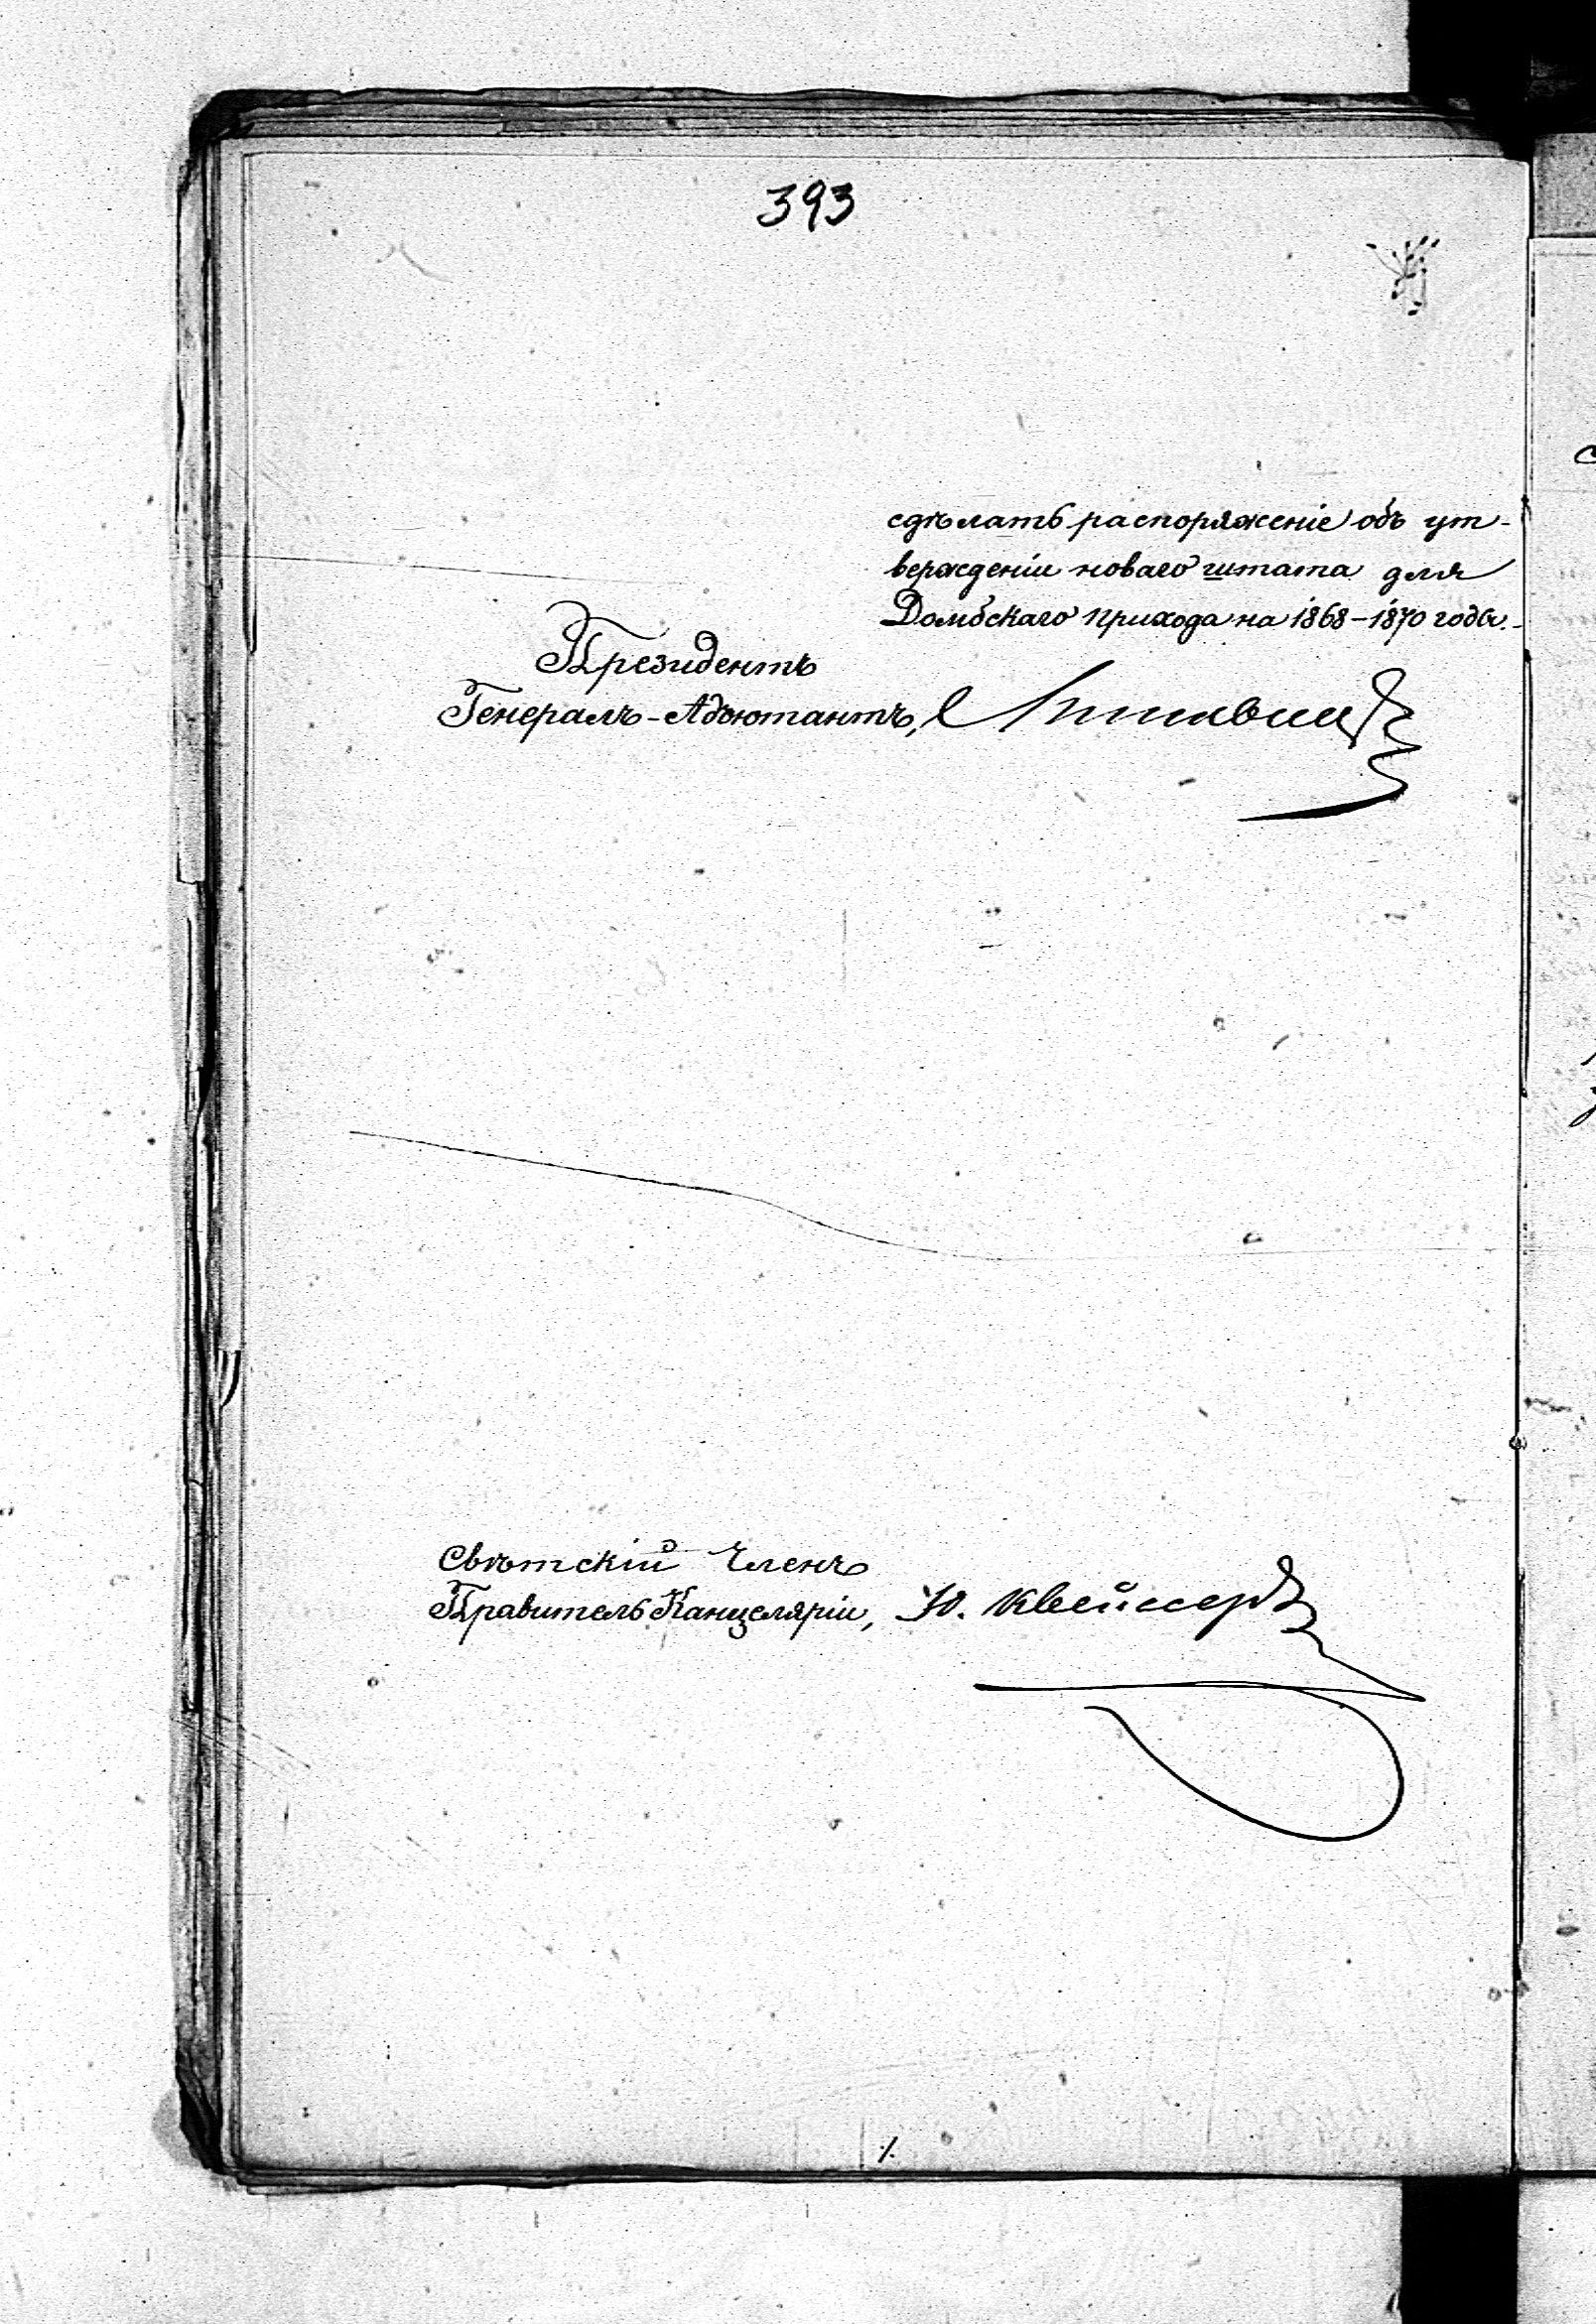 393
сдѣлать распоряженіе объ ут-
вержденіи новаго штата для
Домбскаго прихода на 1868–1870 годы.
Президентъ
Генералъ-Адъютантъ,
Свѣтскій Членъ
Правитель Канцеляріи, Ю. Квейссеръ